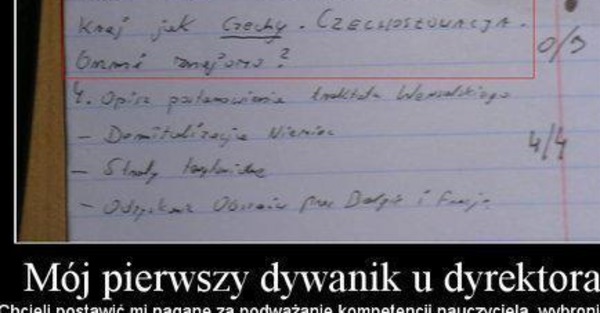 Kraj jak Czechy. CZECHOSŁOWACJA.
Brzmi znajomo?
0/3
4. Opisz postanowienia traktatu Wersalskiego
- Demilitalizacja Niemiec
4/4
- Straty
- Odzyskanie Obszarów przez Belgię i
Mój pierwszy dywanik u dyrektora
Chcieli postawić mi naganę za podważanie kompetencji nauczyciela, wybroni